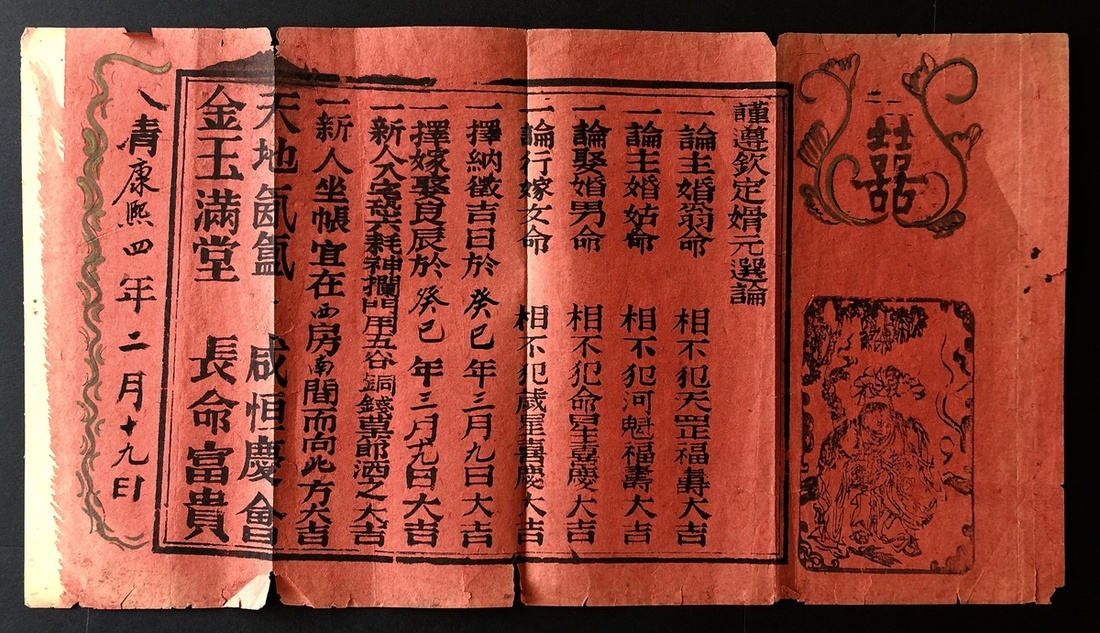 囍
謹遵欽定婚元選論
一論主婚翁命 相不犯天罡福壽大吉
一論主婚姑命 相不犯河魁福壽大吉
一論娶婚男命 相不犯命星喜慶大吉
一論行嫁女命 相不犯歲星喜慶大吉
一擇納徵吉日於癸巳年三月九日大吉
一擇嫁娶良辰於癸巳年三月九日大吉
一新人入宅六耗神攔門用五谷銅錢草節酒之大吉
一新人坐帳宜在西房南間面向北方大吉
天地氤氳 咸恒慶會
金玉滿堂 長命富貴
大清康熙四年二月十九日